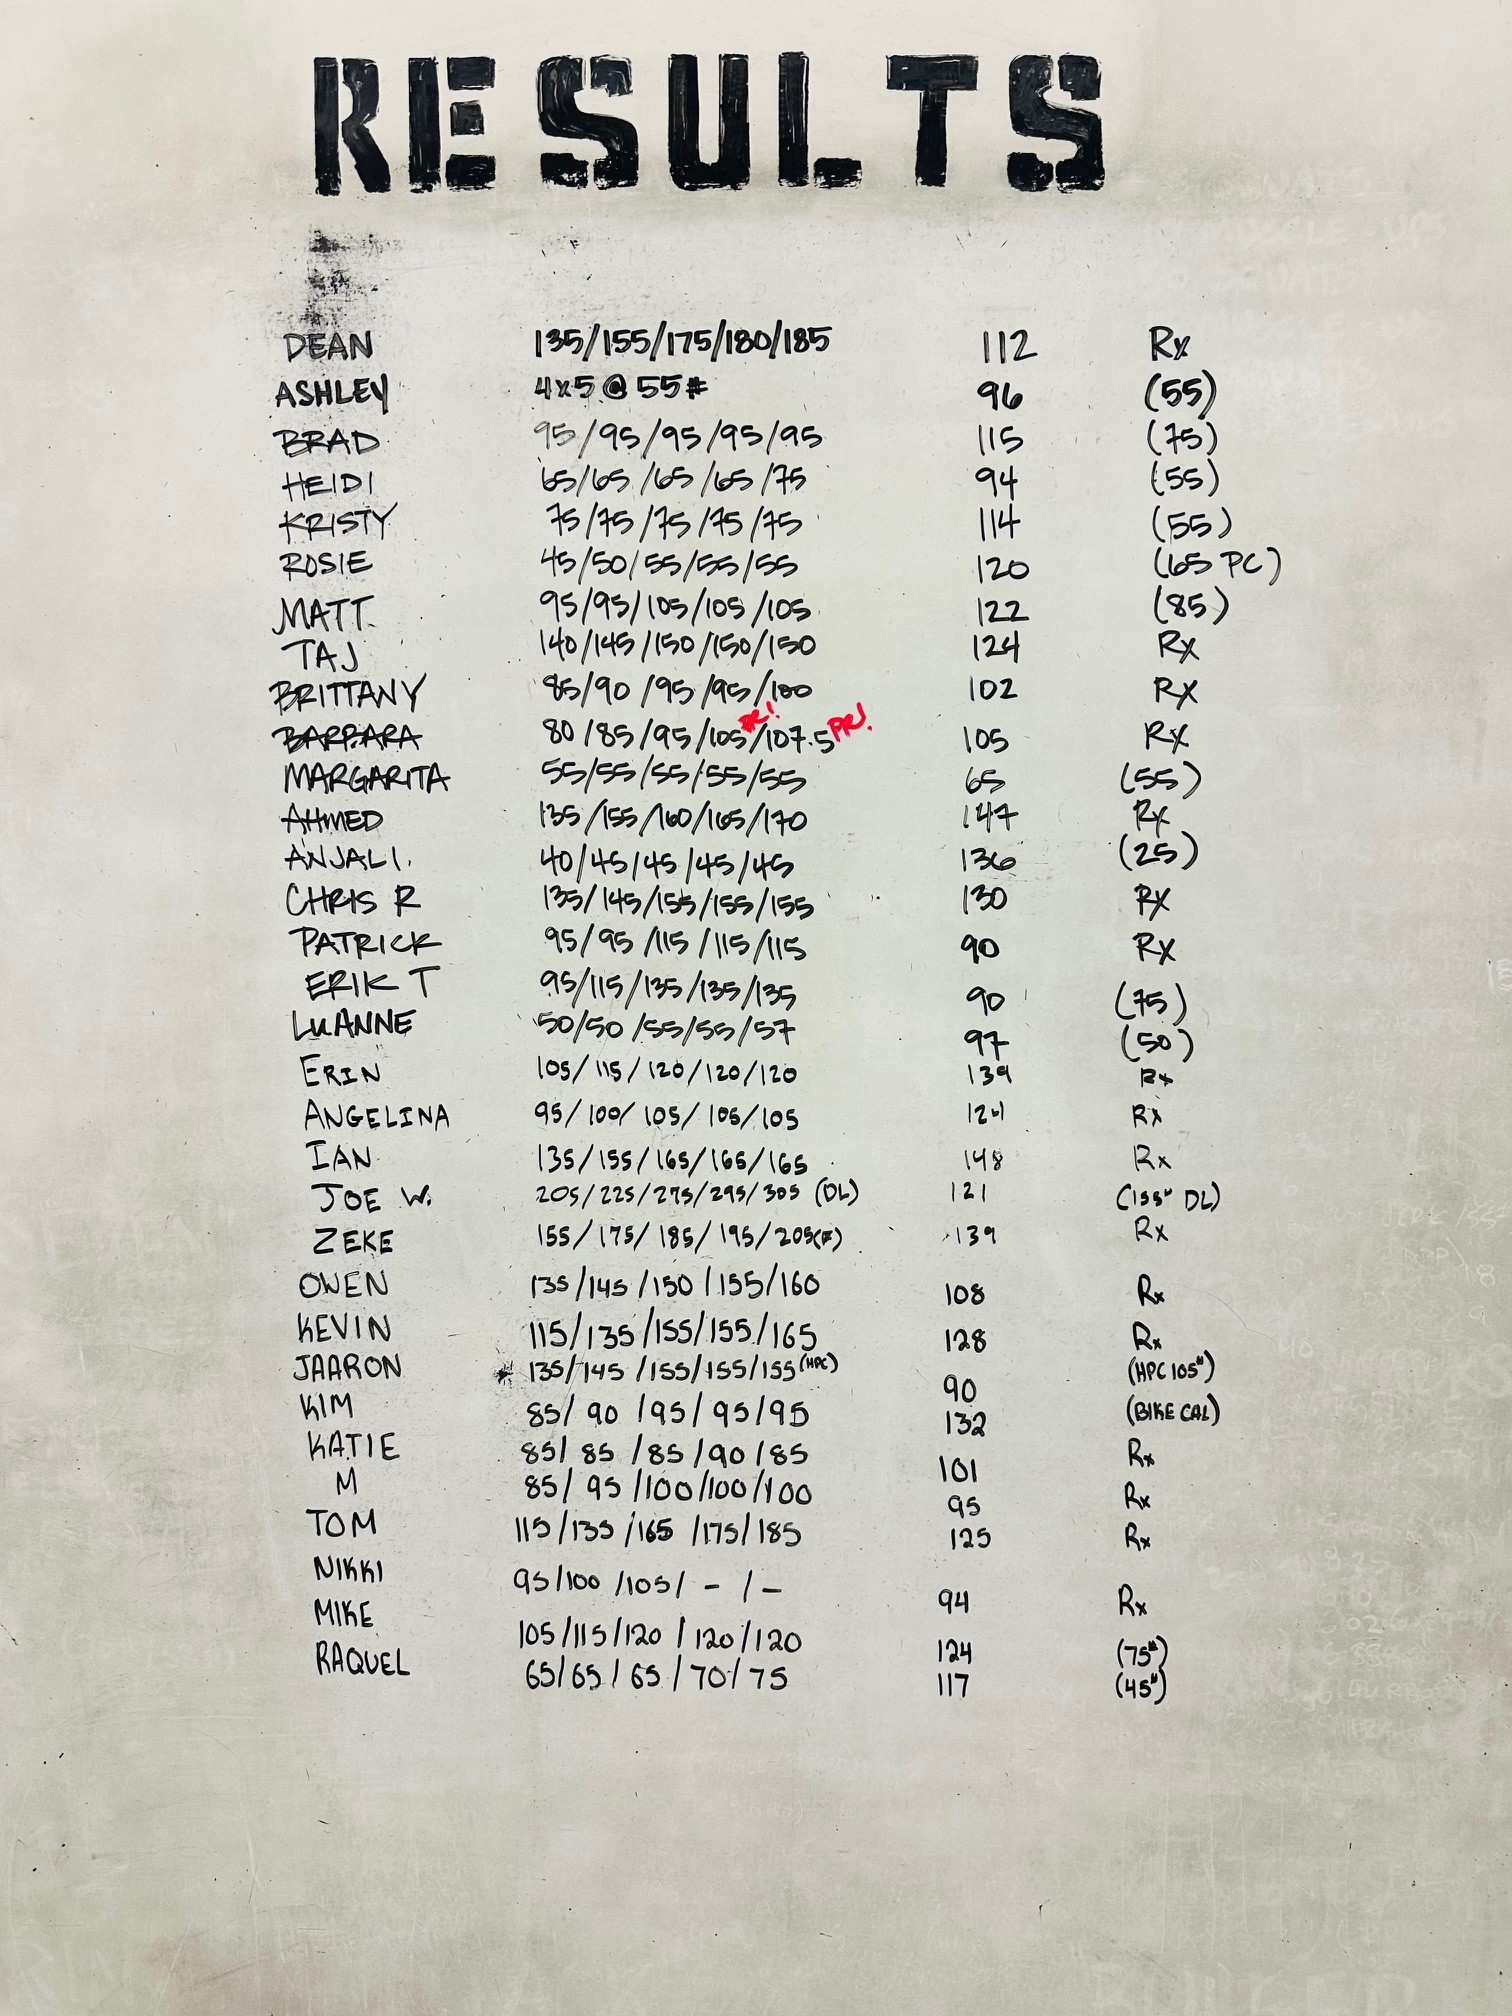 RESULTS
DEAN 135/155/175/180/185 112 Rx
ASHLEY 4x5 @ 55# 96 (55)
BRAD 95/95/95/95/95 115 (75)
HEIDI 65/65/65/65/75 94 (55)
KRISTY 75/75/75/75/75 114 (55)
ROSIE 45/50/55/55/55 120 (65 PC)
MATT 95/95/105/105/105 122 (85)
TAJ 140/145/150/150/150 124 Rx
BRITTANY 85/90/95/95/100 102 Rx
BARBARA 80/85/95/105 PR!/107.5 PR! 105 Rx
MARGARITA 55/55/55/55/55 65 (55)
AHMED 135/155/160/165/170 147 Rx
ANJALI. 40/45/45/45/45 136 (25)
CHRIS R 135/145/155/155/155 130 Rx
PATRICK 95/95/115/115/115 90 Rx
ERIK T 95/115/135/135/135 90 (75)
LUANNE 50/50/55/55/57 97 (50)
ERIN 105/115/120/120/120 139 Rx
ANGELINA 95/100/105/105/105 Rx
IAN 135/155/165/165/165 148 Rx
JOE W. 205/225/275/295/305 (DL) 121 (155# DL)
ZEKE 155/175/185/195/205(F) 139 Rx
OWEN 135/145/150/155/160 108 Rx
KEVIN 115/135/155/155/165 128 Rx
JAARON 135/145/155/155/155 (HPC) 90 (HPC 105#)
KIM 85/90/95/95/95 132 (BIKE CAL)
KATIE 85/85/85/90/85 101 Rx
M 85/95/100/100/100 95 Rx
TOM 115/135/165/175/185 125 Rx
NIKKI 95/100/105/-/- 94 Rx
MIKE 105/115/120/120/120 124 (75#)
RAQUEL 65/65/65/70/75 117 (45#)